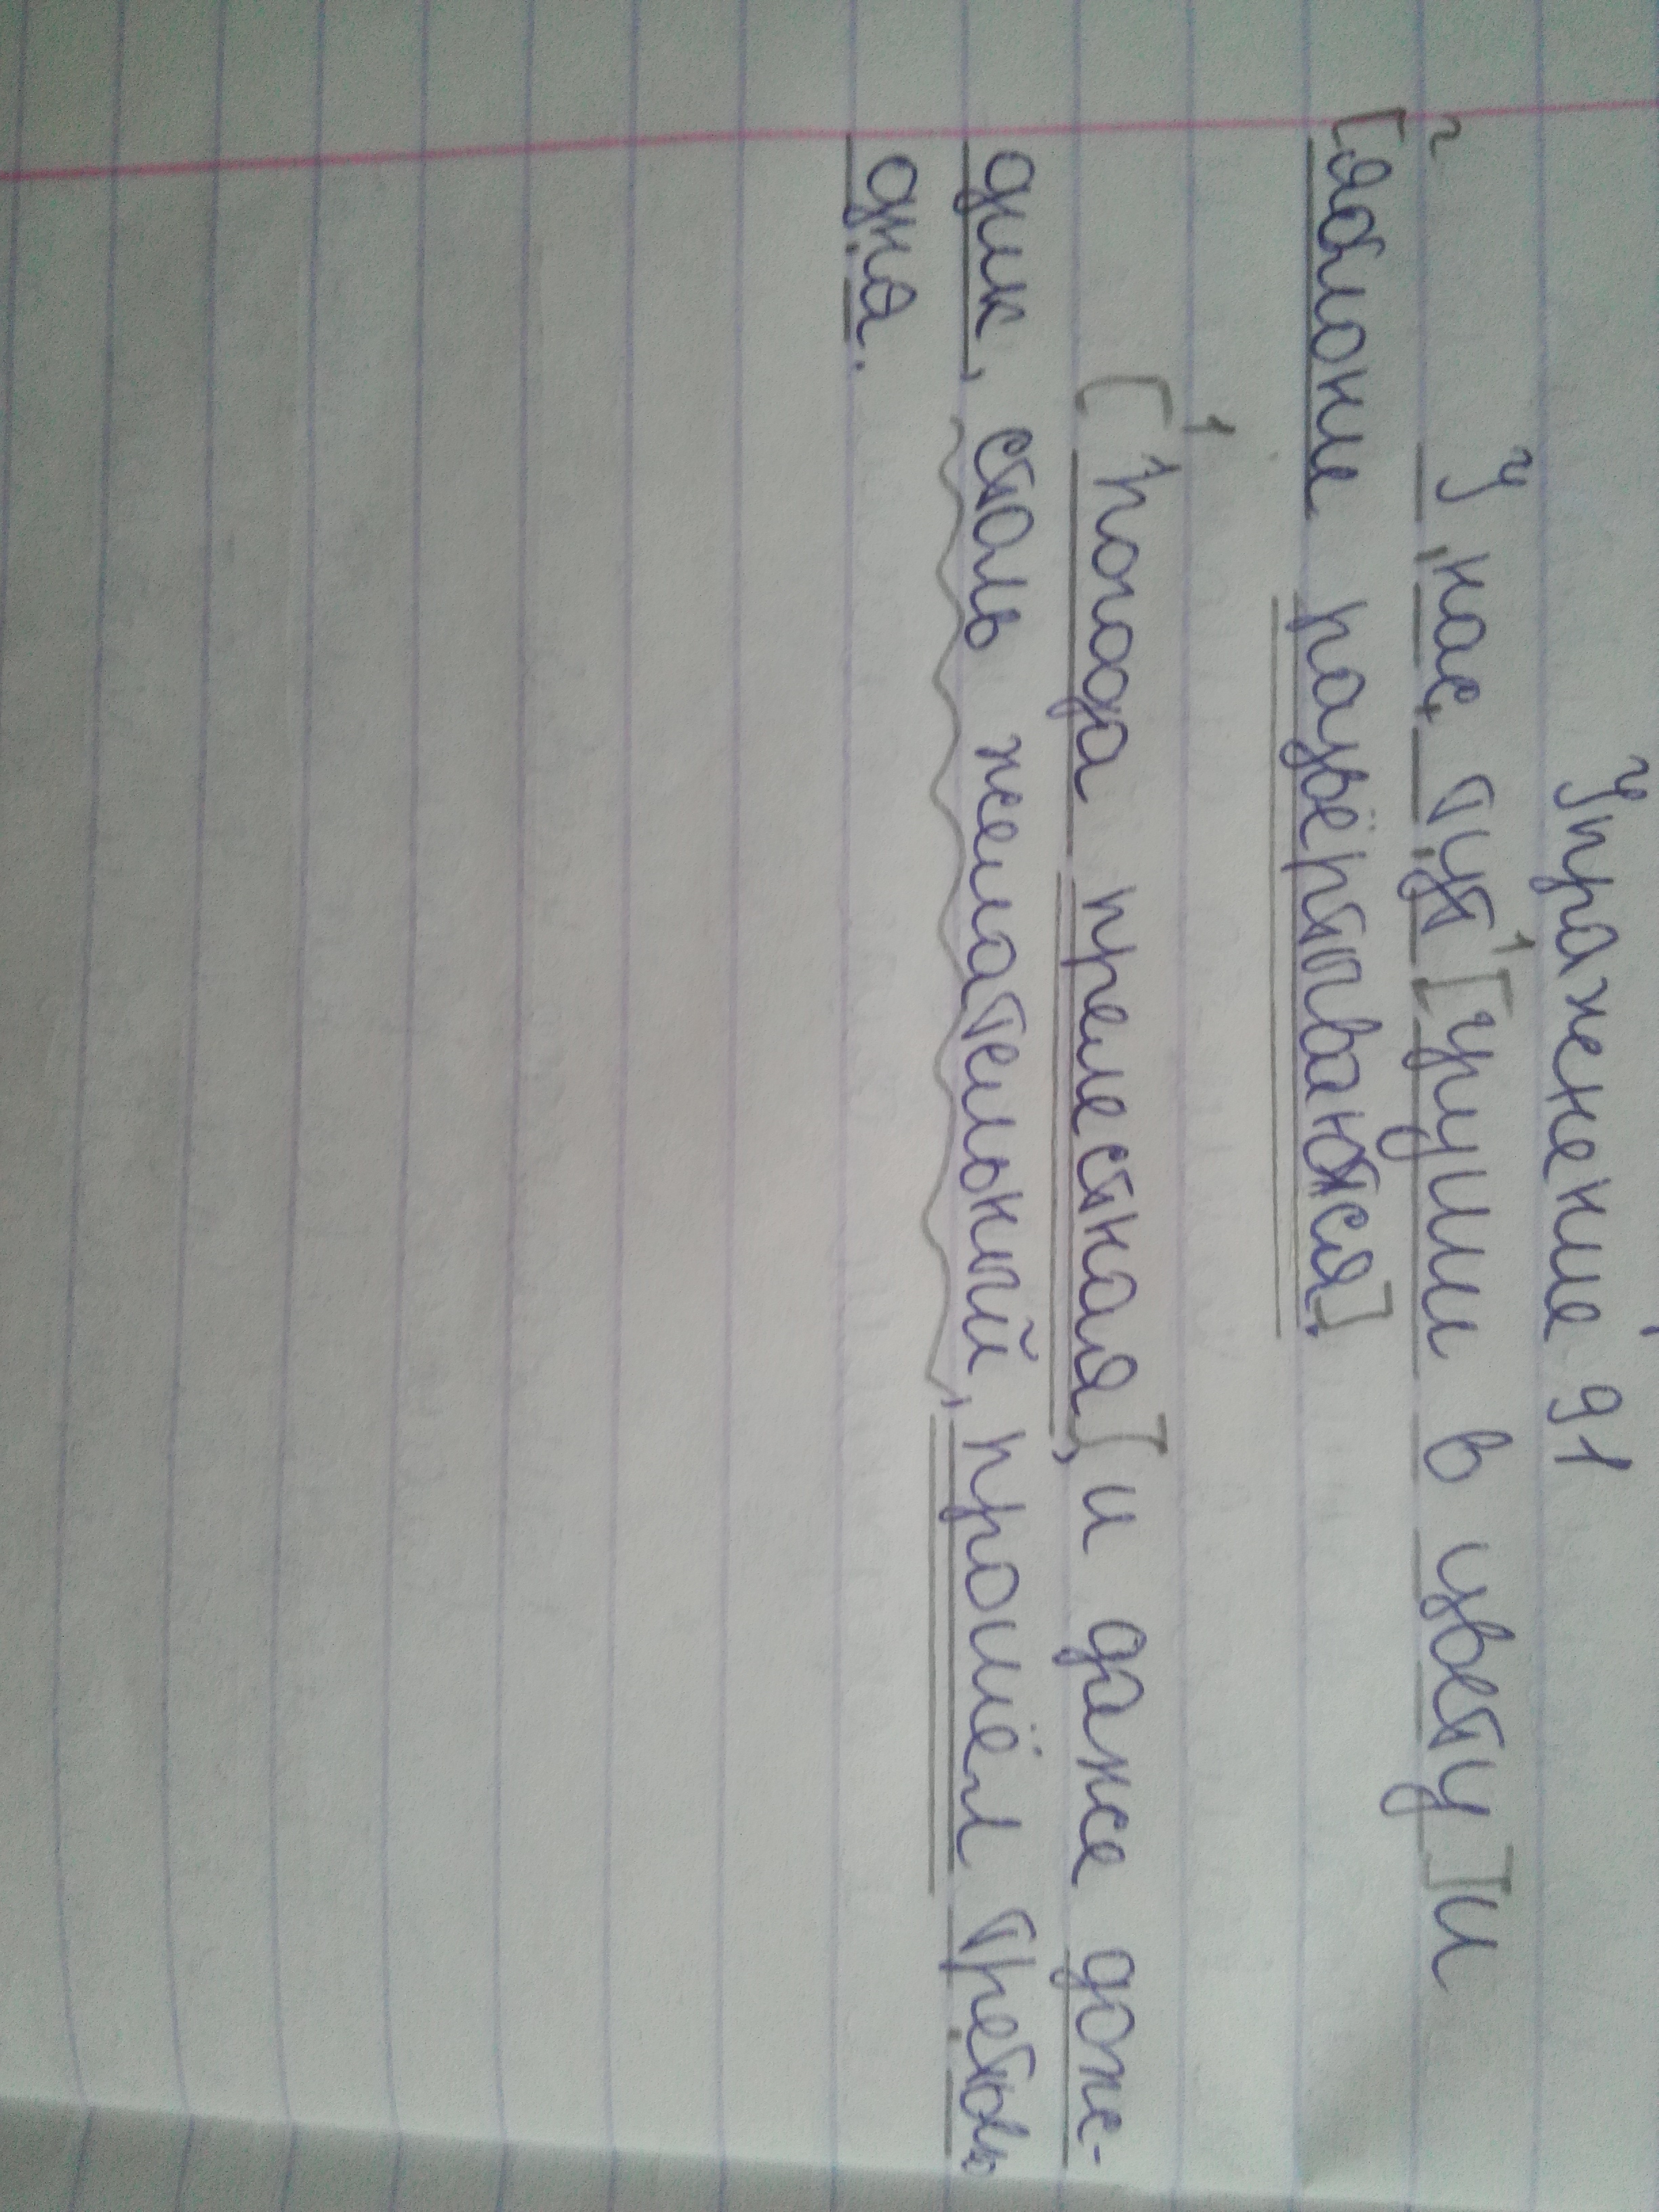 Упражнение 91
У нас тут [груши в цвету] и
[яблоне развёртываются].
[Погода прелестная], и даже дож-
дик, столь желательный, прошёл третьего
дня.